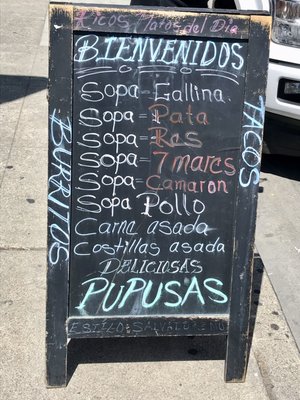 Ricos Platos del Dia
BIENVENIDOS
Sopa-Gallina
Sopa-Pata
Sopa-Res
Sopa-7 mares
Sopa-Camaron
Sopa Pollo
Carne asada
Costillas asada
DELICIOSAS
PUPUSAS
ESTILO SALVADOREÑO
BURRITOS
TACOS